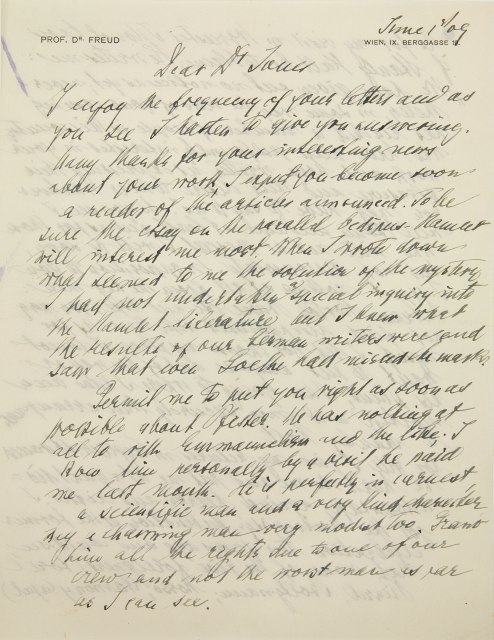 PROF. Dr. FREUD
June 1st/09
WIEN, IX. BERGGASSE 19.
Dear Dr Jones
I enjoy the frequency of your letters and as
you see I hasten to give you answering.
Many thanks for your interesting news
about your work, I expect you become soon
a reader of the articles announced. To be
sure the essay on the parallel Oedipus-Hamlet
will interest me most. When I wrote down
what seemed to me the solution of the mystery
I had not undertaken special inquiry into
the Hamlet-literature but I knew what
the results of our German writers were and
saw that even Goethe had missed the mark.
Permit me to put you right as soon as
possible about Pfister. He has nothing at
all to with Emmanuelism and the like. I
know him personally by a visit he paid
me last month. He is perfectly in earnest,
a scientific man and a very kind character
a charming man very modest too. Grant
him all the rights due to one of our
crew and not the worst man as far
as I can see.